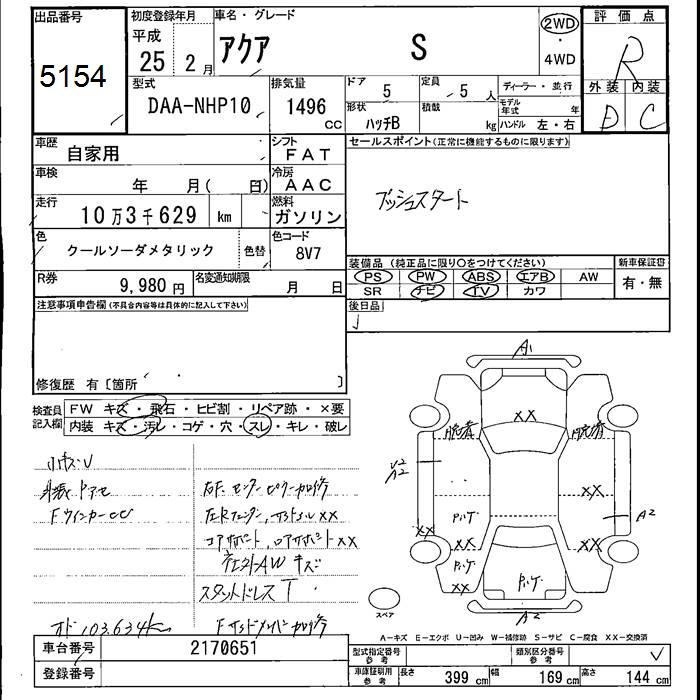 出品番号
5154
初度登録年月
平成
25年 2月
車名・グレード
アクア S
2WD
4WD
評価点
R
外装 内装
D C
型式
DAA-NHP10
排気量
1496 CC
ドア 5
定員 5 人
形状 ハッチB
積載 kg
ディーラー・並行
モデル年式 年
ハンドル 左・右
車歴
自家用
シフト
FAT
車検
年 月( 日)
冷房
AAC
走行
10万3千629 km
燃料
ガソリン
色
クールソーダメタリック
色替
色コード
8V7
R券
9,980 円
名変通知期限
月 日
セールスポイント(正常に機能するものに限ります)
プッシュスタート
装備品 (純正品に限り〇をつけてください)
PS PW ABS エアB AW
SR ナビ TV カワ
新車保証書
有・無
後日品
注意事項申告欄(不具合内容等は具体的に記入して下さい)
修復歴 有〔箇所 〕
検査員記入欄
FW キズ・飛石・ヒビ割・リペア跡・×要
内装 キズ・汚レ・コゲ・穴・スレ・キレ・破レ
小キズ・U
Fウインカーcc
オド 103,634km
コアサポート、ロアサポートXX
AW キズ
スタットドレスT
A1
XX
U2
A2
XX
A2
XX
XX
XX
XX
A2
スペア
A-キズ E-エクボ U-凹み W-補修跡 S-サビ C-腐食 XX-交換済
車台番号
2170651
登録番号
型式指定番号
参考
類別区分番号
参考
車庫証明用
参考
長さ 399 cm
幅 169 cm
高さ 144 cm